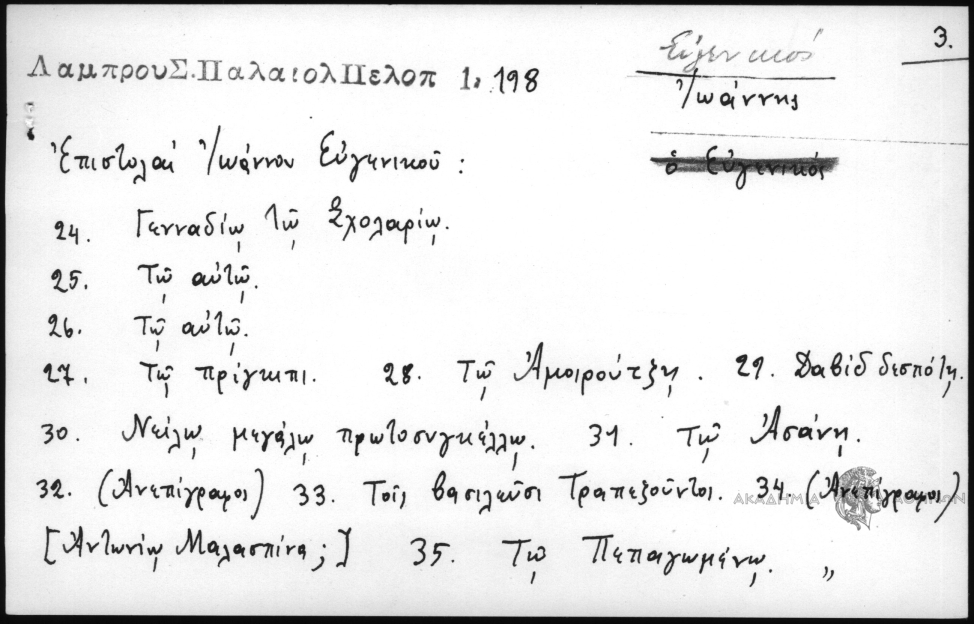 3.
Εὐγενικός
Λαμπρου Σ. Παλαιολ Πελοπ 1, 198
Ἰωάννης
Ἐπιστολαὶ Ἰωάννου Εὐγενικοῦ :
ὁ Εὐγενικός
24. Γενναδίῳ τῷ Σχολαρίῳ.
25. Τῷ αὐτῷ.
26. Τῷ αὐτῷ.
27. Τῷ πρίγκιπι. 28. Τῷ Ἀμοιρούτζῃ. 29. Δαβὶδ δεσπότῃ.
30. Νείλῳ μεγάλῳ πρωτοσυγκέλλῳ. 31. Τῷ Ἀσάνῃ.
32. (Ἀνεπίγραφοι) 33. Τοῖς βασιλεῦσι Τραπεζοῦντος. 34. (Ἀνεπίγραφοι)
ΑΚΑΔΗΜΙΑ
[Ἀντωνίῳ Μαλασπίνα;] 35. Τῷ Πεπαγωμένῳ. „